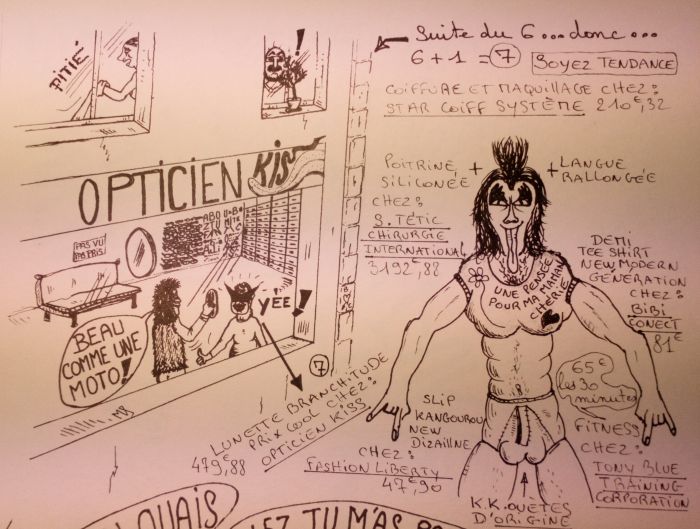 PITIÉ
!
SUITE DU 6...DONC...
6+1=7
SOYEZ TENDANCE
COIFFURE ET MAQUILLAGE CHEZ:
STAR COIFF SYSTÈME 210€,32
OPTICIEN KISS
PAS VU
PAS PRIS
BEAU
COMME UNE
MOTO!
YEE!
7
MB
LUNETTE BRANCHITUDE
PRIX COOL CHEZ:
OPTICIEN KISS
479€,88
POITRINE
SILICONÉE
CHEZ:
S. TÉTIC
CHIRURGIE
INTERNATIONAL
3192€,88
+
+ LANGUE
RALLONGÉE
DEMI
TEE SHIRT
NEW MODERN
GÉNÉRATION
CHEZ:
BIBI
CONECT
81€
UNE PENSÉE
POUR MA MAMAN
CHÉRIE
SLIP
KANGOUROU
NEW
DIZAILLNE
CHEZ:
FASHION LIBERTY
47€,90
65€
les 30
minutes
FITNESS
CHEZ:
TONY BLUE
TRAINING
CORPORATION
K.K.OUETES
D'ORIGINE
OUAIS
TU M'AS